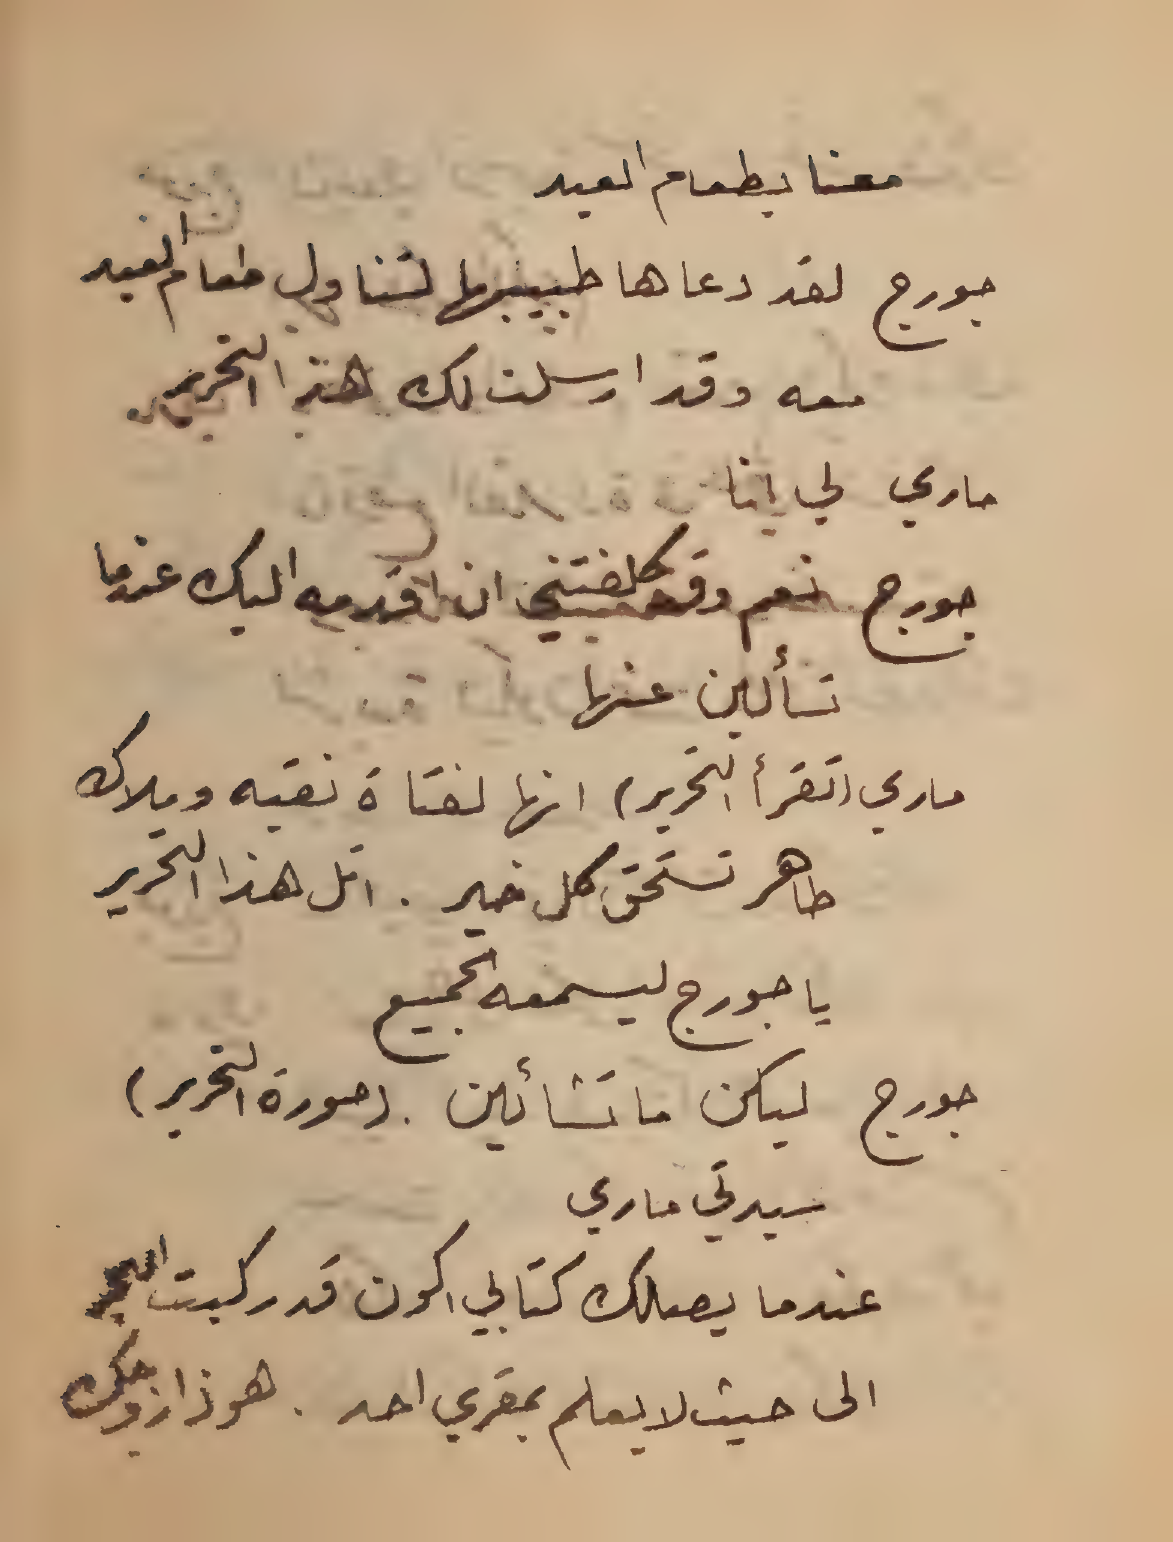 معنا بطعام العيد
جورج لقد دعاها طبيبها لتناول طعام العيد
معه وقد ارسلت لك هذا التحرير
ماري لي انا
جورج نعم وقد كلفتني ان اقدمه اليك عندما
تسألين عنها
ماري (تقرأ التحرير) انها لفتاة نقيه وملاك
طاهر تستحق كل خير . اتل هذا التحرير
يا جورج ليسمعه الجميع
جورج ليكن ما تشائين . (صورة التحرير)
سيدتي ماري
عندما يصلك كتابي اكون قد ركبت البحر
الى حيث لا يعلم بمقري احد . هوذا زوجك